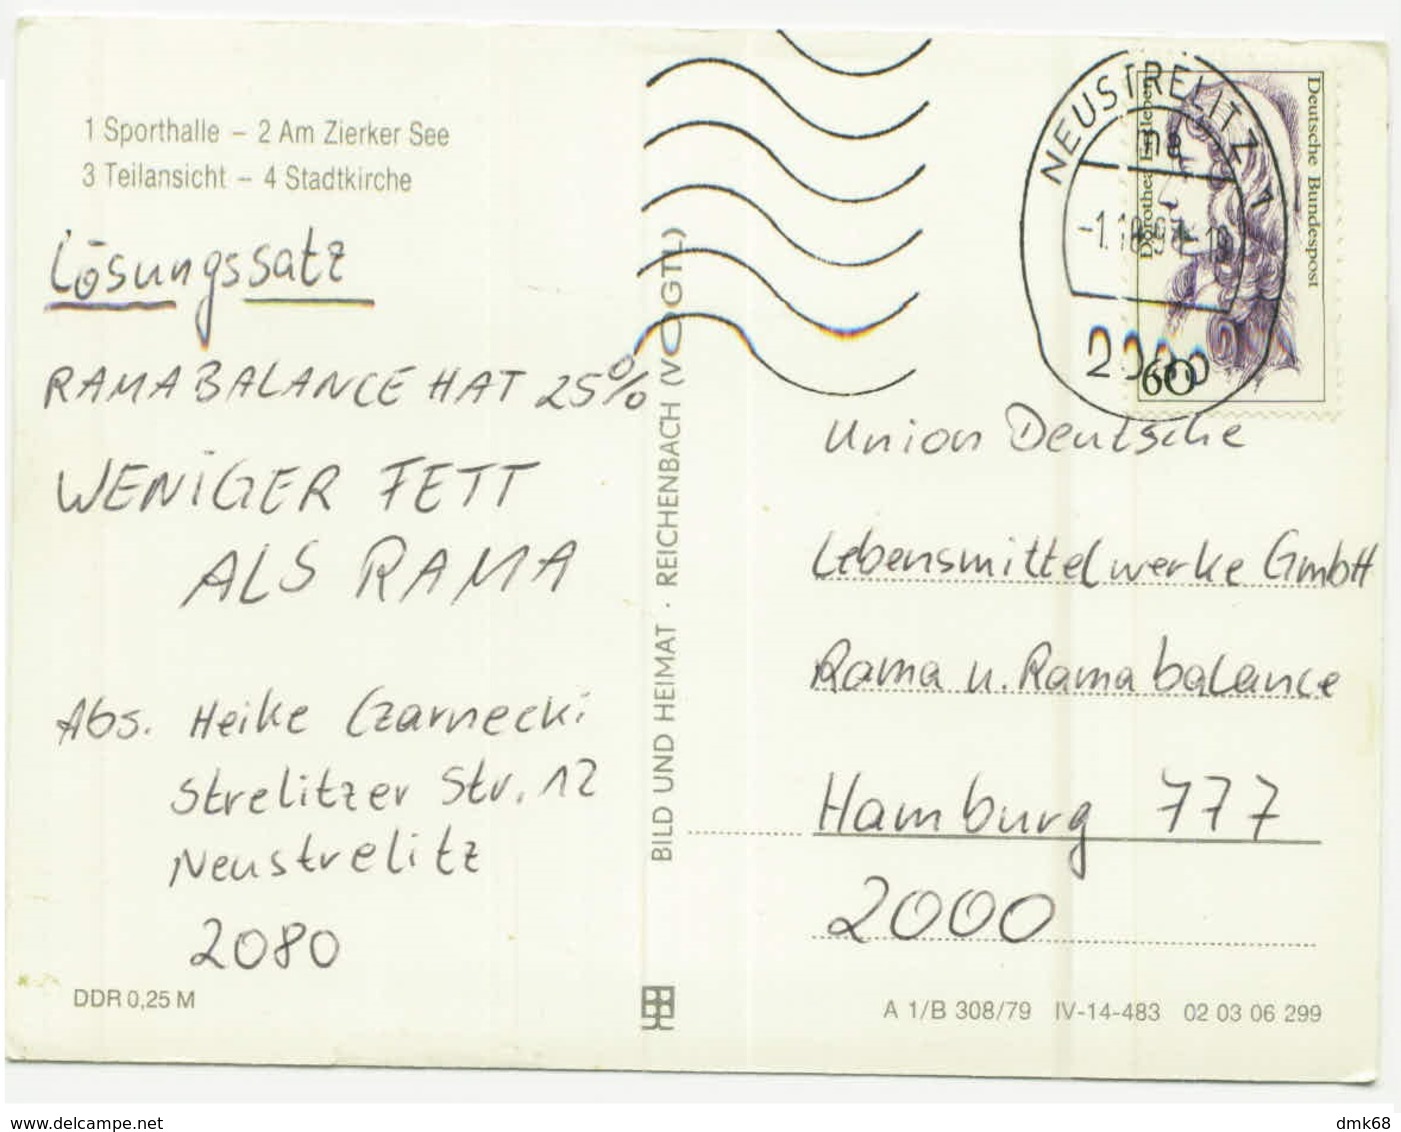 1 Sporthalle – 2 Am Zierker See
3 Teilansicht – 4 Stadtkirche
Lösungssatz
RAMA BALANCE HAT 25%
WENiGER FETT
ALS RAMA
Abs. Heike Czarnecki
Strelitzer Str. 12
Neustrelitz
2080
DDR 0,25 M
BILD UND HEIMAT · REICHENBACH (VOGTL)
NEUSTRELITZ 1
Deutsche Bundespost
Dorothea Erxleben
60
Union Deutsche
Lebensmittelwerke GmbH
Rama u. Rama balance
Hamburg 777
2000
A 1/B 308/79 IV-14-483 02 03 06 299
www.delcampe.net
dmk68